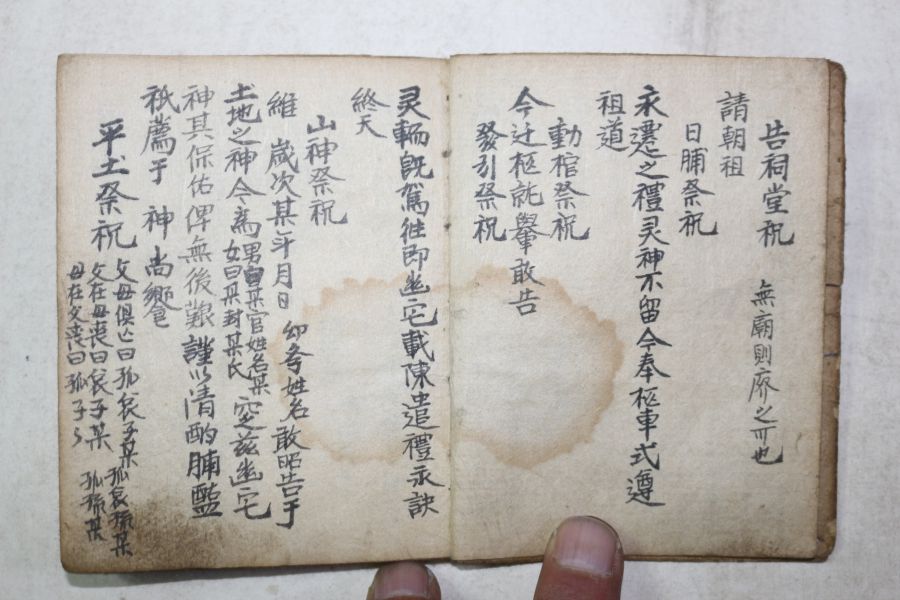 告祠堂祝 無廟則廢之可也
請朝祖
日脯祭祝
永遷之禮灵神不留今奉柩車式遵
祖道
動棺祭祝
今迁柩就轝敢告
發引祭祝
灵輀旣駕徃即幽宅載陳遣禮永訣
終天
山神祭祝
維 歲次某年月日 幼孝姓名敢昭告于
土地之神今爲男曰某官姓名某女曰某封某氏窆兹幽宅
神其保佑俾無後艱謹以清酌脯醢
祇薦于 神尚饗
平土祭祝
父母俱亡曰孤哀子某 孤哀孫某
父在母喪曰哀子某
母在父喪曰孤子 孤孫某